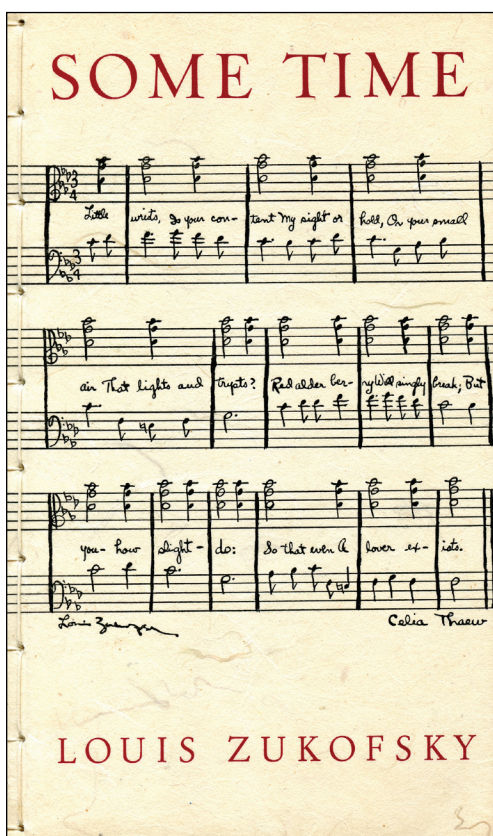 SOME TIME
Little wrists, Is your con- tent My sight or hold, Or your small
air That lights and trysts? Red alder ber- ry Will singly break; But
you- how slight- do: So that even A lover ex- ists.
Louis Zukofsky Celia Thaew
LOUIS ZUKOFSKY